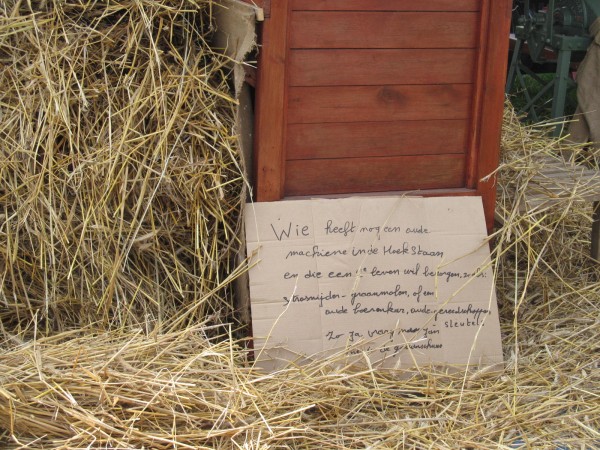 Wie heeft nog een oude
machiene in de Hoek staan
en die een 2e leven wil bezorgen,
strosnijder - graanmolen, of een
oude boerenkar, oude gereedschappen,
Zo Ja, vraag naar Jan
sleutel.